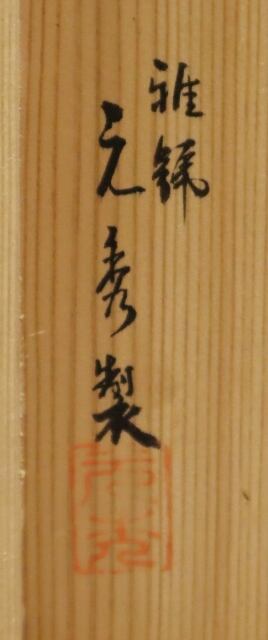 雅號
元秀製